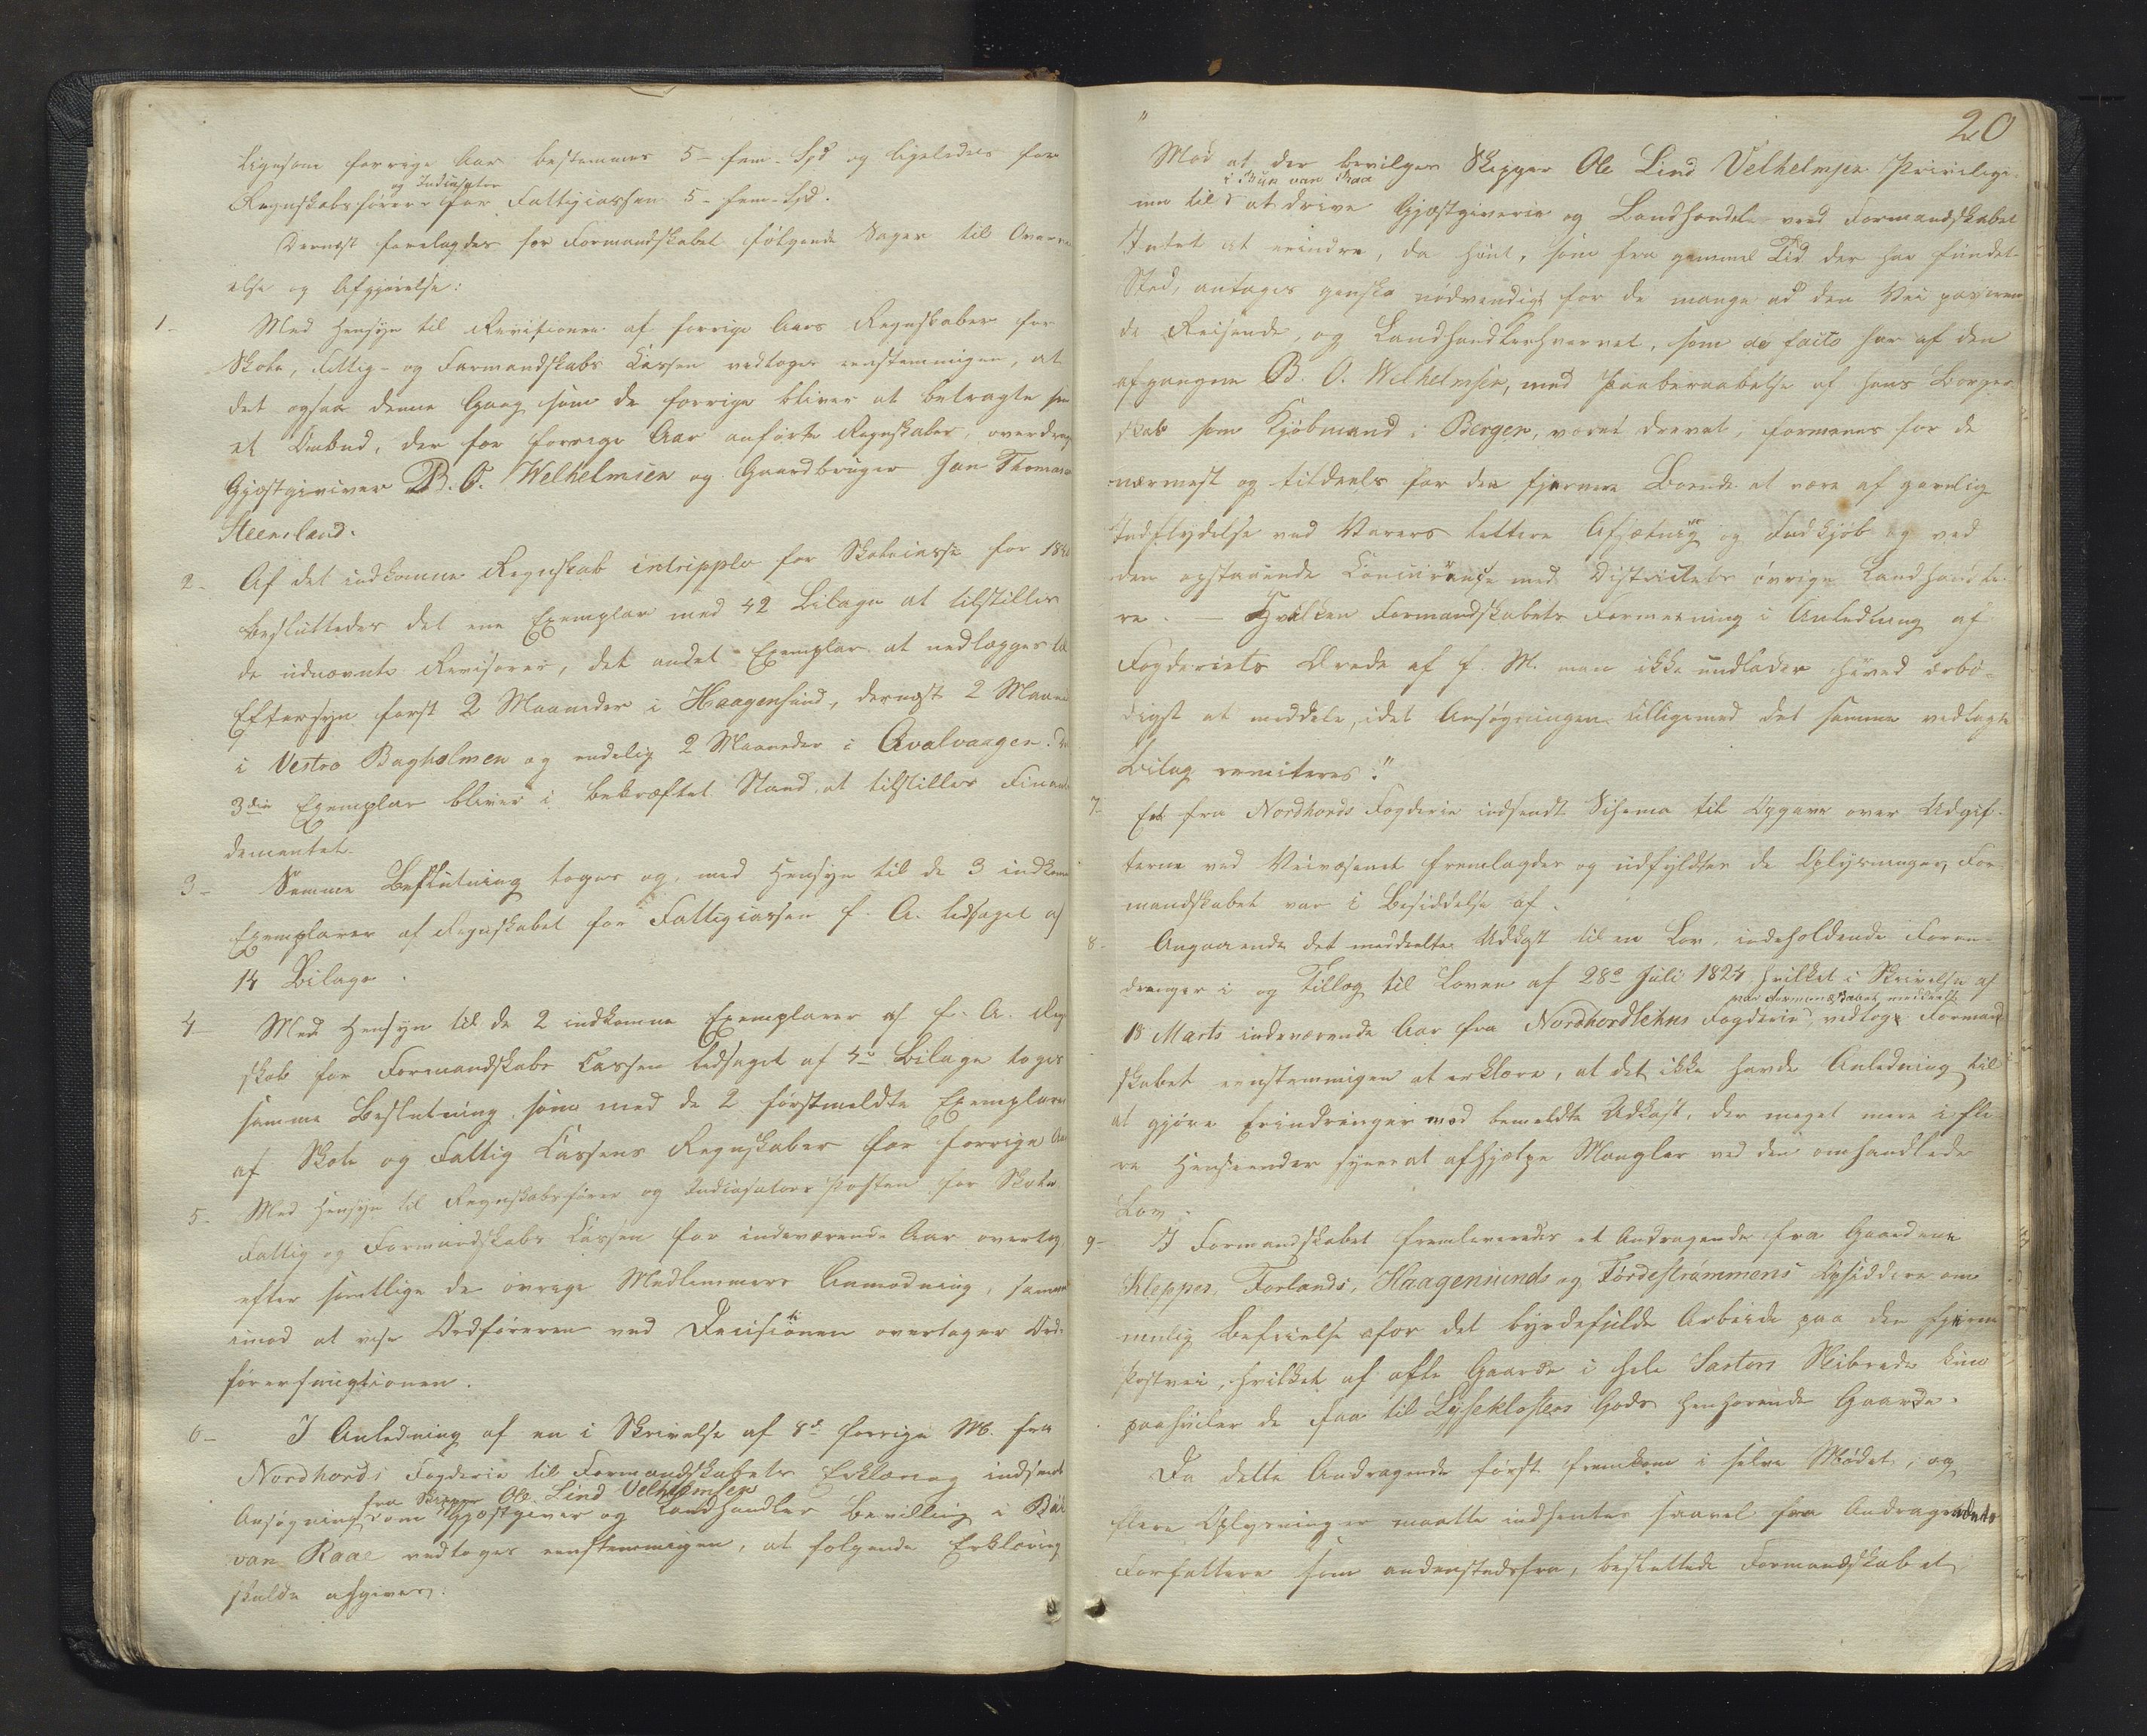 Ligesom forrige Aar bestemmes 5 - fem - Spd og ligeledes for
og Indcasator
Regnskabsførere for Fattigcassen 5 - fem - Spd.
Dernæst forelagdes for Formandskabet følgende Sager til Overvei
else og Afgjørelse:
1- Med Hensyn til Revisionen af forrige Aars Regnskaber for
Skole, Fattig- og Formandskabs Cassen vedtoges eenstemmigen, at
det ogsaa denne Gang som de forrige bliver at betragte som
et Ombud, der for forrige Aar anførte Regnskaber, overdrages
Gjæstgiver B. O. Welhelmsen og Gaardbruger Jan Thomasen
Steensland.
2- Af det indkomne Regnskab intripplo for Skolecassen for 184
besluttedes det ene Exemplar med 42 Bilage at tilstilles
de udnævnte Revisorer, det andet Exemplar at nedlægges til
Eftersyn først 2 Maaneder i Haagensund, dernæst 2 Maaned
i Vestre Bagholmen og endelig 2 Maaneder i Qvalvaagen. Det
3die Exemplar bliver i bekræftet Stand at tilstilles Finants
dementet.
3- Samme Beslutning toges og, med Hensyn til de 3 indkomne
Exemplarer af Regnskabet for Fattigcassen f. A. ledsaget af
14 Bilage.
4- Med Hensyn til de 2 indkomne Exemplarer af f. A. Regn
skab for Formandskabs Cassen ledsaget af 5 Bilage toges
samme Beslutning, som med de 2 førstmeldte Exemplarer
af Skole og Fattig Cassens Regnskaber for forrige Aar
5- Med Hensyn til Regnskabsfører og Indcasators Posten for Skole
Fattig og Formandskabs Cassen for indeværende Aar overtog,
efter samtlige de øvrige Medlemmers Anmodning, samme
imod at vise Ordføreren ved Decisionen overtager Ord-
førerfunctionen.
6- I Anledning af en i Skrivelse af 8de forrige M. fra
Nordhords Fogderie til Formandskabets Erklæring indsendt
fra Skipper Ole Lind Velhelmsen
Ansøgning om Gjæstgiver og Landhandler Bevilling i Buk
van Raae vedtoges eenstemmigen, at følgende Erklæring
skulde afgives:
20
"
Mod at der bevilges Skipper Ole Lind Velhelmsen Privilegi-
i Buk van Raae
um til at drive Gjæstgiverie og Landhandel veed Formandskabet
Intet at erindre, da hiint, som fra gammel Tid der har fundet
Sted, antages ganske nødvendigt for de mange ad den Vei passeren
de Reisende, og Landhandlerhvervet, som de facto har af den
afgangne B. O. Welhelmsen, med Paaberaabelse af hans Borger
skab som Kjøbmand i Bergen, været drevet, formenes for de
nærmest og tildeels for den fjernere Boende at være af gavnlig
Indflydelse ved Varers lettere Afsætning og Indkjøb og ved
den opstaaende Concurrence med Districtets øvrige Landhandle-
re. — Hvilken Formandskabets Formening i Anledning af
Fogderiets Ærede af f. M. man ikke undlader herved ærbø-
digst at meddele, idet Ansøgningen tilligemed det samme vedlagte
Bilag remiteres."
7- Et fra Nordhords Fogderie indsendt Schema til Opgave over Udgif-
terne ved Veivæsenet fremlagdes og udfyldtes de Oplysninger, For-
mandskabet var i Besiddelse af.
8- Angaaende det meddeelte Udkast til en Lov, indeholdende Foran-
dringer i og Tillæg til Loven af 28de Juli 1824 hvilket i Skrivelse af
var Formandskabet meddeelt
18 Marts indeværende Aar fra Nordhordlehns Fogderie, vedtog Formand
skabet eenstemmigen at erklære, at det ikke havde Anledning til
at gjøre Erindringer mod bemeldte Udkast, der meget mere i fle
re Henseender synes at afhjælpe Mangler ved den omhandlede
Lov.
9- I Formandskabet fremleveredes et Andragende fra Gaardene
Kleppes, Forlands, Haagensunds og Førdestrømmens Opsiddere om
mulig Befrielse for det byrdefulde Arbeide paa den fjerne
Postvei, hvilket af alle Gaarde i hele Sartors Skibrede kun
paahviler de faa til Lyseklosters Gods henhørende Gaarde.
Da dette Andragende først fremkom i selve Mødet, og
flere Oplysninger maatte indhentes saavel fra Andragendets
Forfattere som andenstedsfra, besluttede Formandskabet